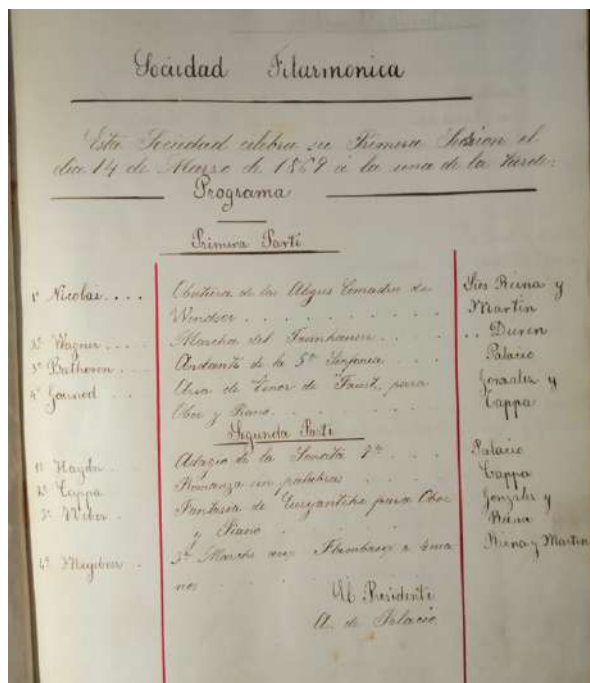 Sociedad Filarmonica
Esta Sociedad celebra su Primera Sesion el
dia 14 de Marzo de 1869 à la una de la tarde.
Programa
Primera Parte
1º Nicolai . . . . Obertura de las Alegres Comadres de Sres Reina y
Windsor . . . . . . . . Martin
2º Wagner . . . . Marcha del Tannhauser . . . . . . Duren
3º Bethoven . . . Andante de la 5ª Sinfonia . . . . Palacio
4º Gounod . . . Aria de tenor de Faust, para Gonzalez y
Oboe y Piano . . . . . . Cappa
Segunda Parte
1º Haydn . . Adagio de la Sonata 7ª . . . Palacio
2º Cappa . Romanza sin palabras . . . . Cappa
3º Weber . Fantasia de Euryanthe para Oboe Gonzalez y
y Piano . . . . . . Reina
4º Meyerbeer . 3ª Marche aux Flambeaux a 4 ma Riena y Martin
nos . . . . . .
El Presidente
A. de Palacio